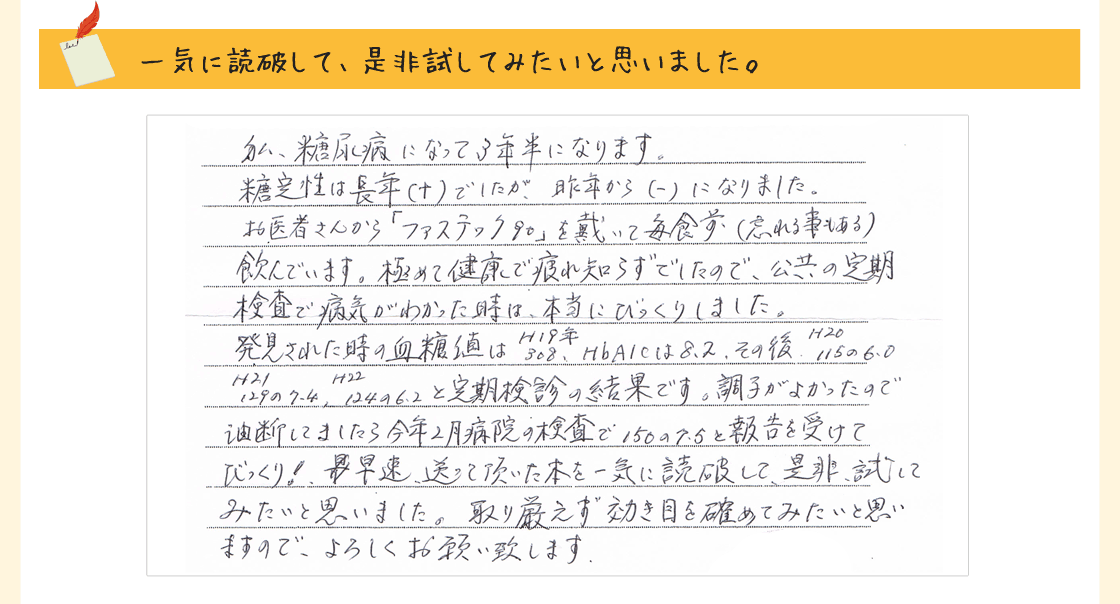 一気に読破して、是非試してみたいと思いました。
私、糖尿病になって3年半になります。
糖定性は長年(+)でしたが、昨年から(-)になりました。
お医者さんから「ファステック90」を戴いて毎食前(忘れる事もある)
飲んでいます。極めて健康で疲れ知らずでしたので、公共の定期
検査で病気がわかった時は、本当にびっくりしました。
発見された時の血糖値は H19年 308、HbA1Cは8.2.その後. H20 115の6.0
H21 129の7.4, H22 124の6.2と定期検診の結果です。調子がよかったので
油断してましたら今年2月病院の検査で150の7.5と報告を受けて
びっくり!、早速、送って頂いた本を一気に読破して、是非、試して
みたいと思いました。取り敢えず効き目を確めてみたいと思い
ますので、よろしくお願い致します.